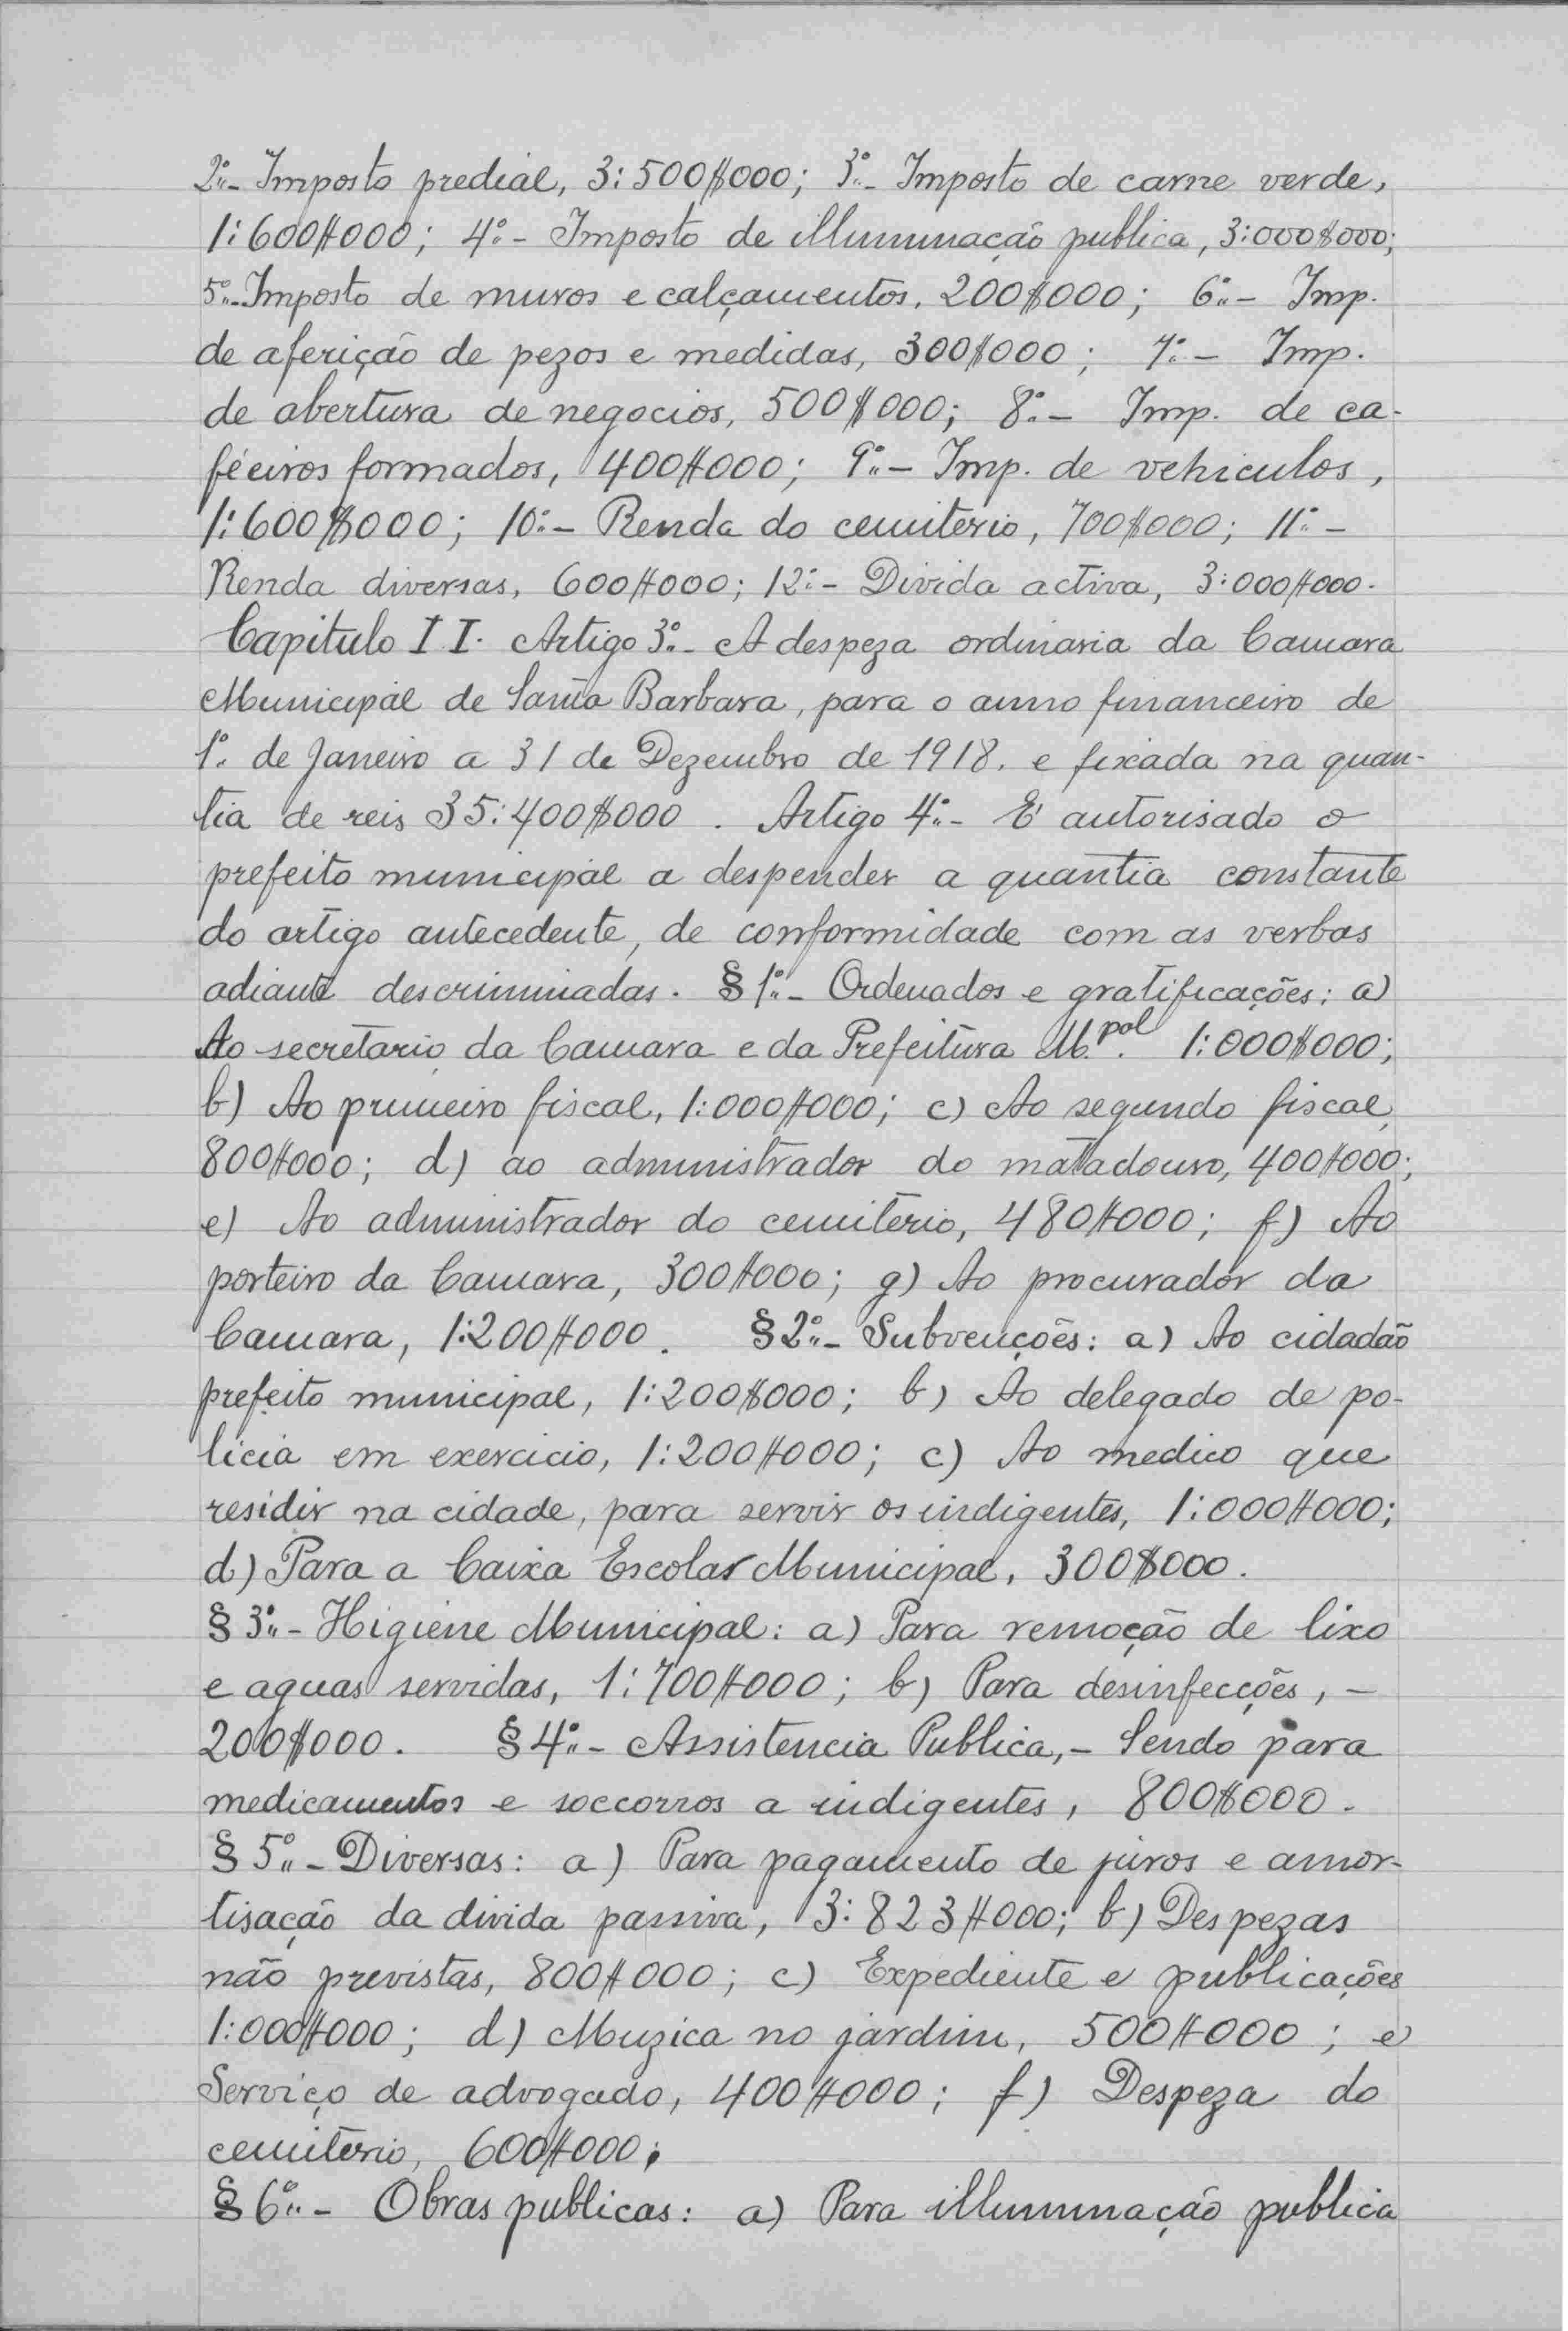 2º- Imposto predial, 3:500$000; 3º- Imposto de carne verde,
1:600$000; 4º- Imposto de illuminação publica, 3:000$000;
5º- Imposto de muros e calçamentos, 200$000; 6º- Imp.
de aferição de pezos e medidas, 300$000; 7º- Imp.
de abertura de negocios, 500$000; 8º- Imp. de ca-
féeiros formados, 400$000; 9º- Imp. de vehiculos,
1:600$000; 10º- Renda do cemiterio, 700$000; 11º-
Renda diversas, 600$000; 12º- Divida activa, 3:000$000.
Capitulo II. Artigo 3º- A despeza ordinaria da Camara
Municipal de Santa Barbara, para o anno financeiro de
1º de Janeiro a 31 de Dezembro de 1918, e fixada na quan-
tia de reis 35:400$000. Artigo 4º- E' autorisado o
prefeito municipal a despender a quantia constante
do artigo antecedente, de conformidade com as verbas
adiante descriminadas. § 1º- Ordenados e gratificações: a)
Ao secretario da Camara e da Prefeitura M.pal 1:000$000;
b) Ao primeiro fiscal, 1:000$000; c) Ao segundo fiscal,
800$000; d) ao administrador do matadouro, 400$000;
e) Ao administrador do cemiterio, 480$000; f) Ao
porteiro da Camara, 300$000; g) Ao procurador da
Camara, 1:200$000. § 2º- Subvenções: a) Ao cidadão
prefeito municipal, 1:200$000; b) Ao delegado de po-
licia em exercicio, 1:200$000; c) Ao medico que
residir na cidade, para servir os indigentes, 1:000$000;
d) Para a Caixa Escolar Municipal, 300$000.
§ 3º- Higiene Municipal: a) Para remoção de lixo
e aguas servidas, 1:700$000; b) Para desinfecções, -
200$000. § 4º- Assistencia Publica,- Sendo para
medicamentos e soccorros a indigentes, 800$000.
§ 5º- Diversas: a) Para pagamento de juros e amor-
tisação da divida passiva, 3:823$000; b) Despezas
não previstas, 800$000; c) Expediente e publicações
1:000$000; d) Muzica no jardim, 500$000; e)
Serviço de advogado, 400$000; f) Despeza do
cemiterio, 600$000;
§ 6º- Obras publicas: a) Para illuminação publica